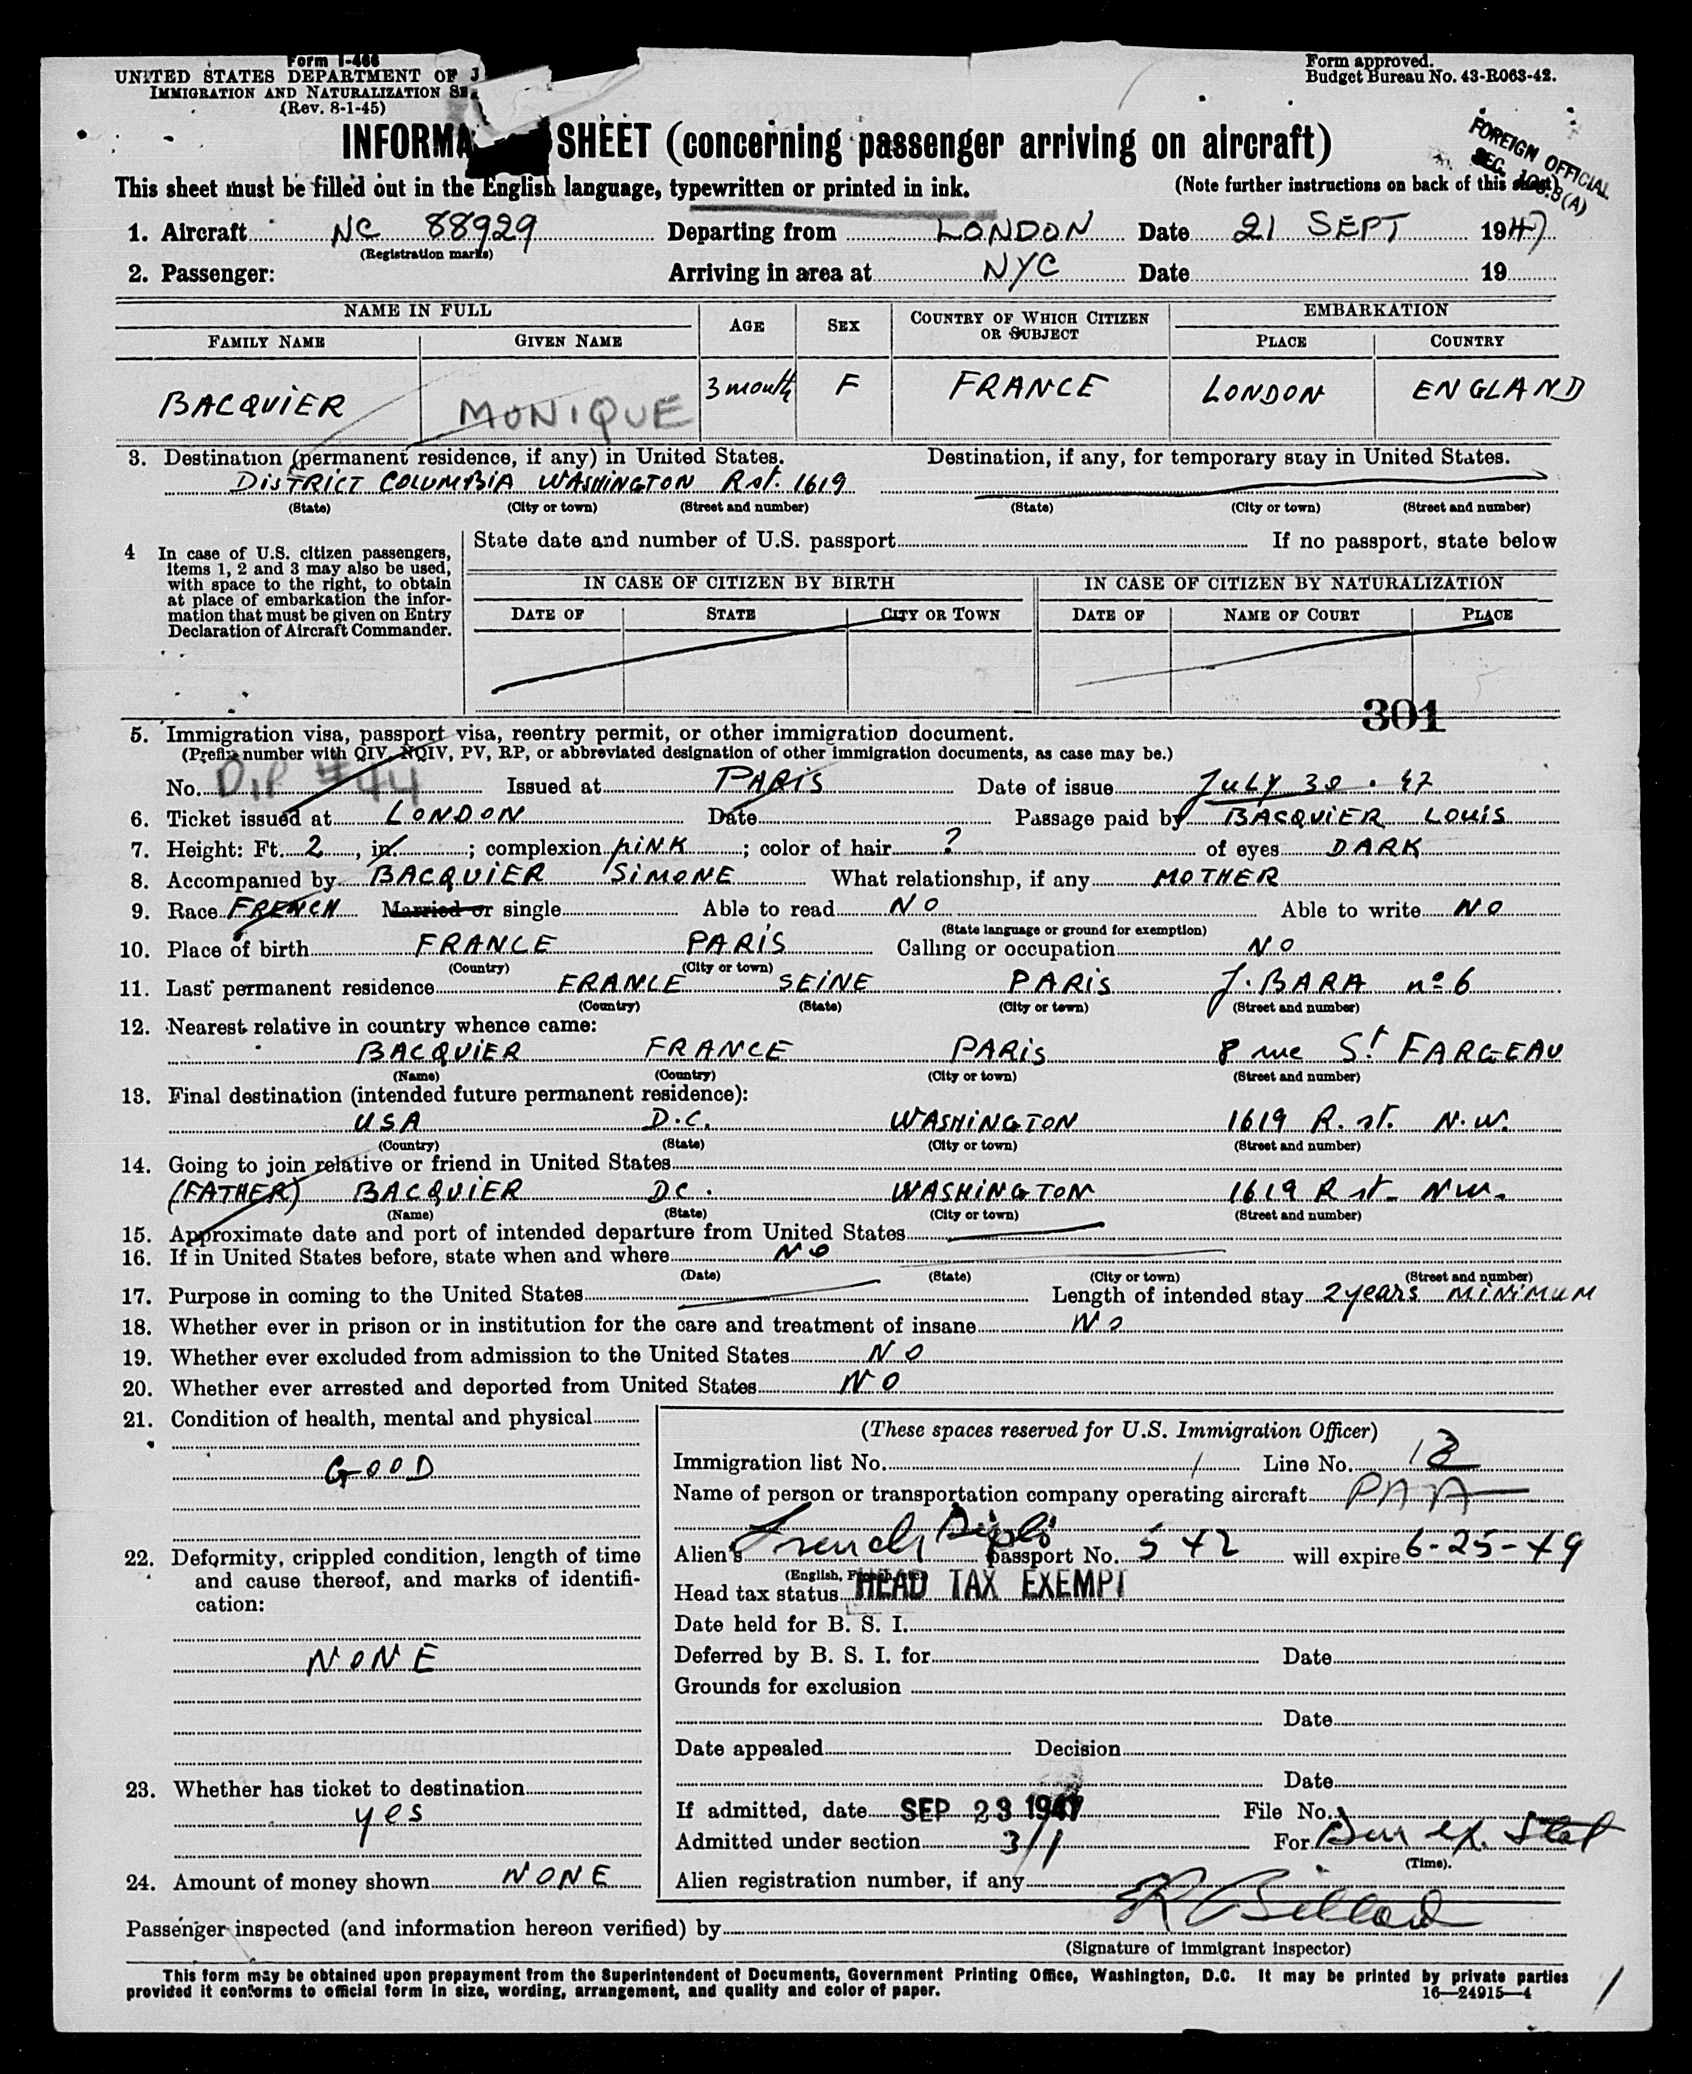 Form I-466
UNITED STATES DEPARTMENT OF J
IMMIGRATION AND NATURALIZATION SE
(Rev. 8-1-45)
Form approved.
Budget Bureau No. 43-R063-42.
INFORMA SHEET (concerning passenger arriving on aircraft)
FOREIGN OFFICIAL
SEC. 10 .3(A)
This sheet must be filled out in the English language, typewritten or printed in ink.
(Note further instructions on back of this sheet)
1. Aircraft NC 88929 Departing from LONDON Date 21 SEPT 1947
(Registration marks)
2. Passenger: Arriving in area at NYC Date 19
NAME IN FULL AGE SEX COUNTRY OF WHICH CITIZEN OR SUBJECT EMBARKATION
FAMILY NAME GIVEN NAME PLACE COUNTRY
BACQUIER MONIQUE 3 month F FRANCE LONDON ENGLAND
3. Destination (permanent residence, if any) in United States. Destination, if any, for temporary stay in United States.
DISTRICT COLUMBIA WASHINGTON R st. 1619
(State) (City or town) (Street and number) (State) (City or town) (Street and number)
4 In case of U.S. citizen passengers, items 1, 2 and 3 may also be used, with space to the right, to obtain at place of embarkation the information that must be given on Entry Declaration of Aircraft Commander.
State date and number of U.S. passport If no passport, state below
IN CASE OF CITIZEN BY BIRTH IN CASE OF CITIZEN BY NATURALIZATION
DATE OF STATE CITY OR TOWN DATE OF NAME OF COURT PLACE
301
5. Immigration visa, passport visa, reentry permit, or other immigration document.
(Prefix number with QIV, NQIV, PV, RP, or abbreviated designation of other immigration documents, as case may be.)
No. DIP #44 Issued at PARIS Date of issue JULY 30. 47
6. Ticket issued at LONDON Date Passage paid by BACQUIER LOUIS
7. Height: Ft. 2, in. ; complexion PINK ; color of hair ? of eyes DARK
8. Accompanied by BACQUIER SIMONE What relationship, if any MOTHER
9. Race FRENCH Married or single Able to read NO Able to write NO
(State language or ground for exemption)
10. Place of birth FRANCE PARIS Calling or occupation NO
(Country) (City or town)
11. Last permanent residence FRANCE SEINE PARIS J. BARA no 6
(Country) (State) (City or town) (Street and number)
12. Nearest relative in country whence came:
BACQUIER FRANCE PARIS 8 rue St FARGEAU
(Name) (Country) (City or town) (Street and number)
13. Final destination (intended future permanent residence):
USA D.C. WASHINGTON 1619 R. st. N.W.
(Country) (State) (City or town) (Street and number)
14. Going to join relative or friend in United States
(FATHER) BACQUIER DC. WASHINGTON 1619 R st. NW.
(Name) (State) (City or town) (Street and number)
15. Approximate date and port of intended departure from United States
16. If in United States before, state when and where NO
(Date) (State) (City or town) (Street and number)
17. Purpose in coming to the United States Length of intended stay 2 years MINIMUM
18. Whether ever in prison or in institution for the care and treatment of insane NO
19. Whether ever excluded from admission to the United States NO
20. Whether ever arrested and deported from United States NO
21. Condition of health, mental and physical
GOOD
22. Deformity, crippled condition, length of time and cause thereof, and marks of identification:
NONE
23. Whether has ticket to destination
yes
24. Amount of money shown NONE
(These spaces reserved for U.S. Immigration Officer)
Immigration list No. 1 Line No. 13
Name of person or transportation company operating aircraft PAA
Alien's French Diplo Passport No. 542 will expire 6-25-49
(English, French, etc.)
Head tax status HEAD TAX EXEMPT
Date held for B. S. I.
Deferred by B. S. I. for Date
Grounds for exclusion
Date
Date appealed Decision
Date
If admitted, date SEP 23 1947 File No.
Admitted under section 3/1 For Dur of Stat
(Time).
Alien registration number, if any
Passenger inspected (and information hereon verified) by
(Signature of immigrant inspector)
This form may be obtained upon prepayment from the Superintendent of Documents, Government Printing Office, Washington, D.C. It may be printed by private parties
provided it conforms to official form in size, wording, arrangement, and quality and color of paper. 16—24915—4